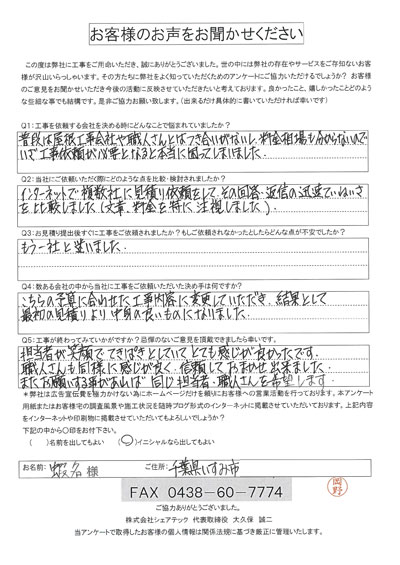 お客様のお声をお聞かせください
この度は弊社に工事をご用命いただき、誠にありがとうございました。世の中には弊社の存在やサービスをご存知ないお客様
が沢山いらっしゃいます。その方たちに弊社をよく知っていただくためのアンケートにご協力いただけるでしょうか? お客様
のご意見をお聞かせいただき今後の活動に反映させていただきたいと考えております。良かったこと、嬉しかったことどのよ
うな些細な事でも結構です。是非ご協力お願い致します。(出来るだけ具体的に書いていただければ幸いです)
Q1:工事を依頼する会社を決める時にどんなことで悩まれていましたか?
普段は屋根工事会社や職人さんとはつき合いがないし、料金相場も分からないので
いざ工事依頼が必要となると本当に困ってしまいました。
Q2:当社にご依頼いただく際にどのような点を比較・検討されましたか?
インターネットで複数社に見積り依頼をして、その回答・返信の迅速ていねいさ
を比較しました(文章、料金を特に注視しました)。
Q3:お見積り提出後すぐに工事をご依頼されましたか?もしご依頼されなかったとしたらどんな点が不安でしたか?
もう一社と迷いました。
Q4:数ある会社の中から当社に工事をご依頼いただいた決め手は何ですか?
こちらの予算に合わせた工事内容に変更していただき、結果として
最初の見積りより中身の良いものになりました。
Q5:工事が終わってみていかがですか?忌憚のないご意見を頂戴できましたら幸いです。
担当者が笑顔でてきぱきとしていてとても感じが良かったです。
職人さんも同様に感じが良く、信頼しておまかせ出来ました。
またお願いする事があれば同じ担当者、職人さんを希望します。
*弊社は広告宣伝費を極力かけない為にホームページだけを頼りにお客様への営業活動を行っております。本アンケート
用紙またはお客様宅の調査風景や施工状況を随時ブログ形式のインターネットに掲載させていただいております。上記内容
をインターネットや印刷物に掲載させていただいてもよろしいでしょうか?
下記の中から○印をお付下さい。
( )名前を出してもよい (○)イニシャルなら出してもよい
お名前: 蝦名 様 ご住所: 千葉県いすみ市
FAX 0438-60-7774
岡野
ご協力ありがとうございました。
株式会社シェアテック 代表取締役 大久保 誠二
当アンケートで取得したお客様の個人情報は関係法規に基づき厳正に管理いたします。